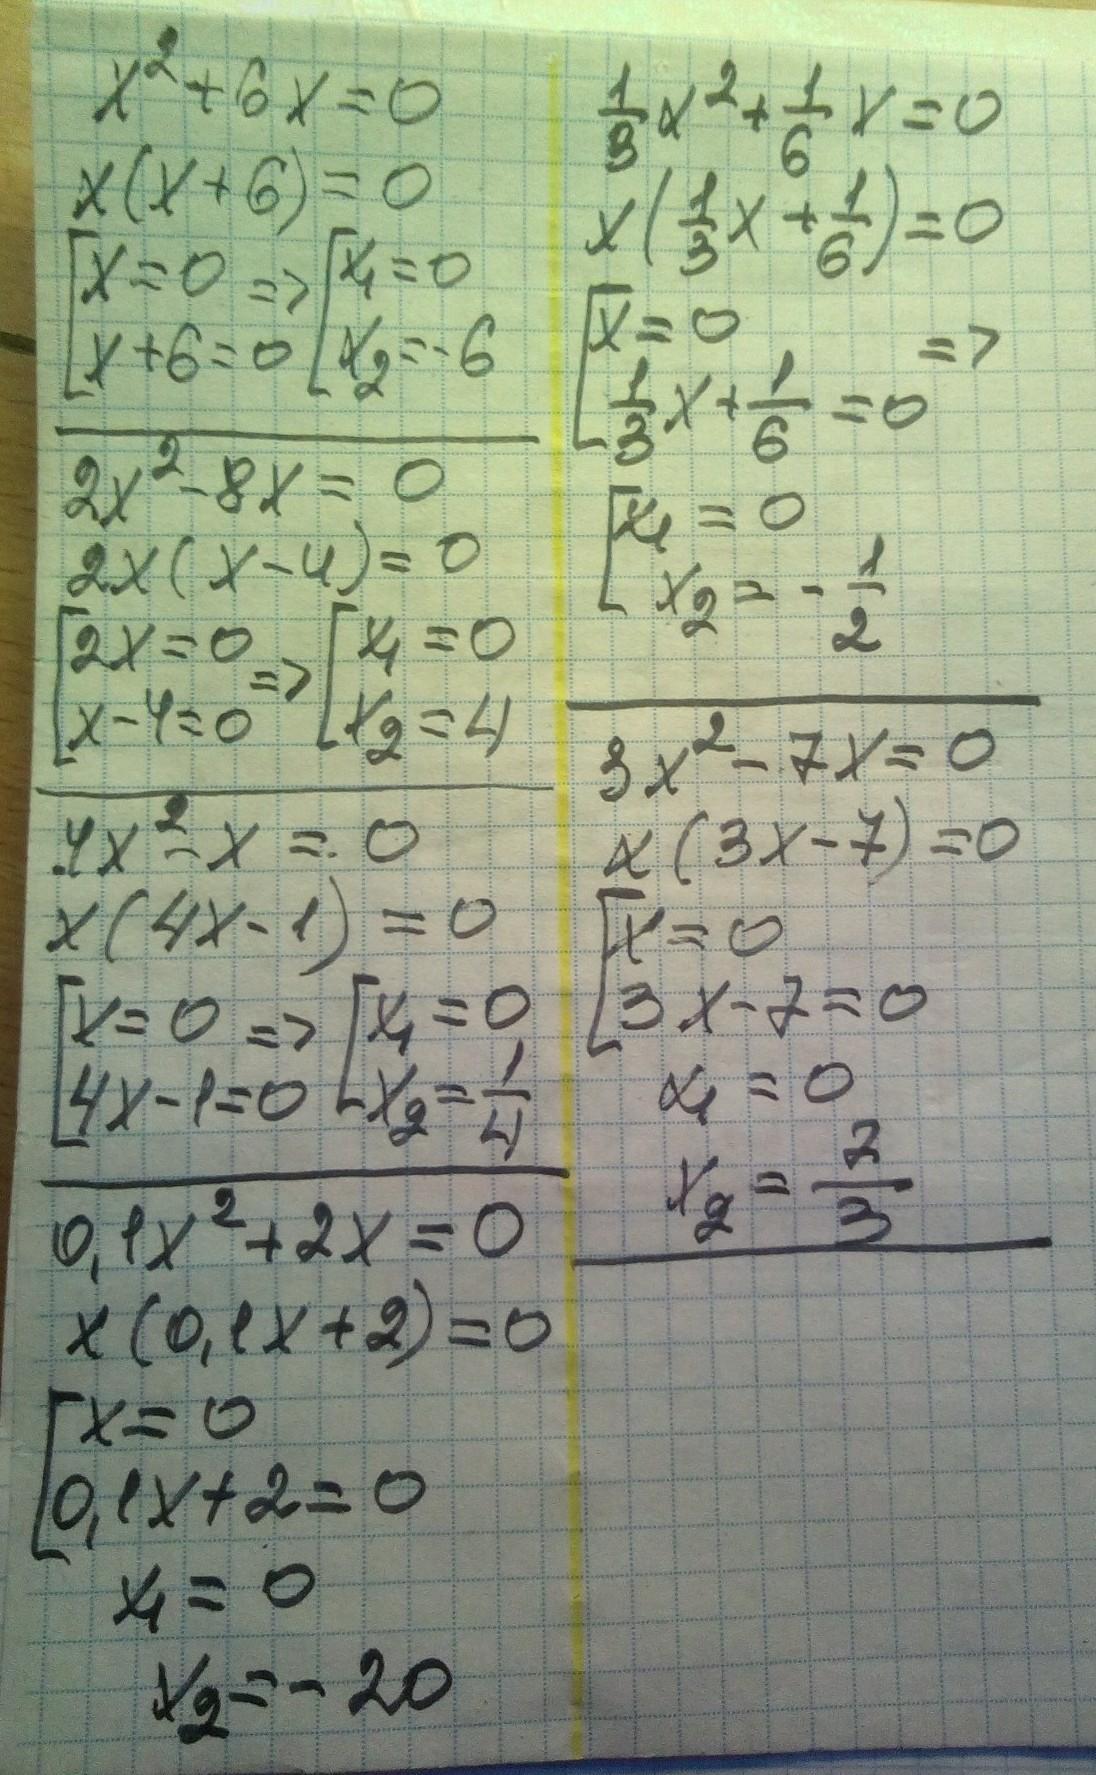 x² + 6x = 0
x(x + 6) = 0
[x = 0 => [x₁ = 0
[x + 6 = 0 [x₂ = -6
2x² - 8x = 0
2x(x - 4) = 0
[2x = 0 => [x₁ = 0
[x - 4 = 0 [x₂ = 4
4x² - x = 0
x(4x - 1) = 0
[x = 0 => [x₁ = 0
[4x - 1 = 0 [x₂ = 1/4
0,1x² + 2x = 0
x(0,1x + 2) = 0
[x = 0
[0,1x + 2 = 0
x₁ = 0
x₂ = -20
1/3 x² + 1/6 x = 0
x(1/3 x + 1/6) = 0
[x = 0 =>
[1/3 x + 1/6 = 0
[x₁ = 0
[x₂ = -1/2
3x² - 7x = 0
x(3x - 7) = 0
[x = 0
[3x - 7 = 0
x₁ = 0
x₂ = 7/3